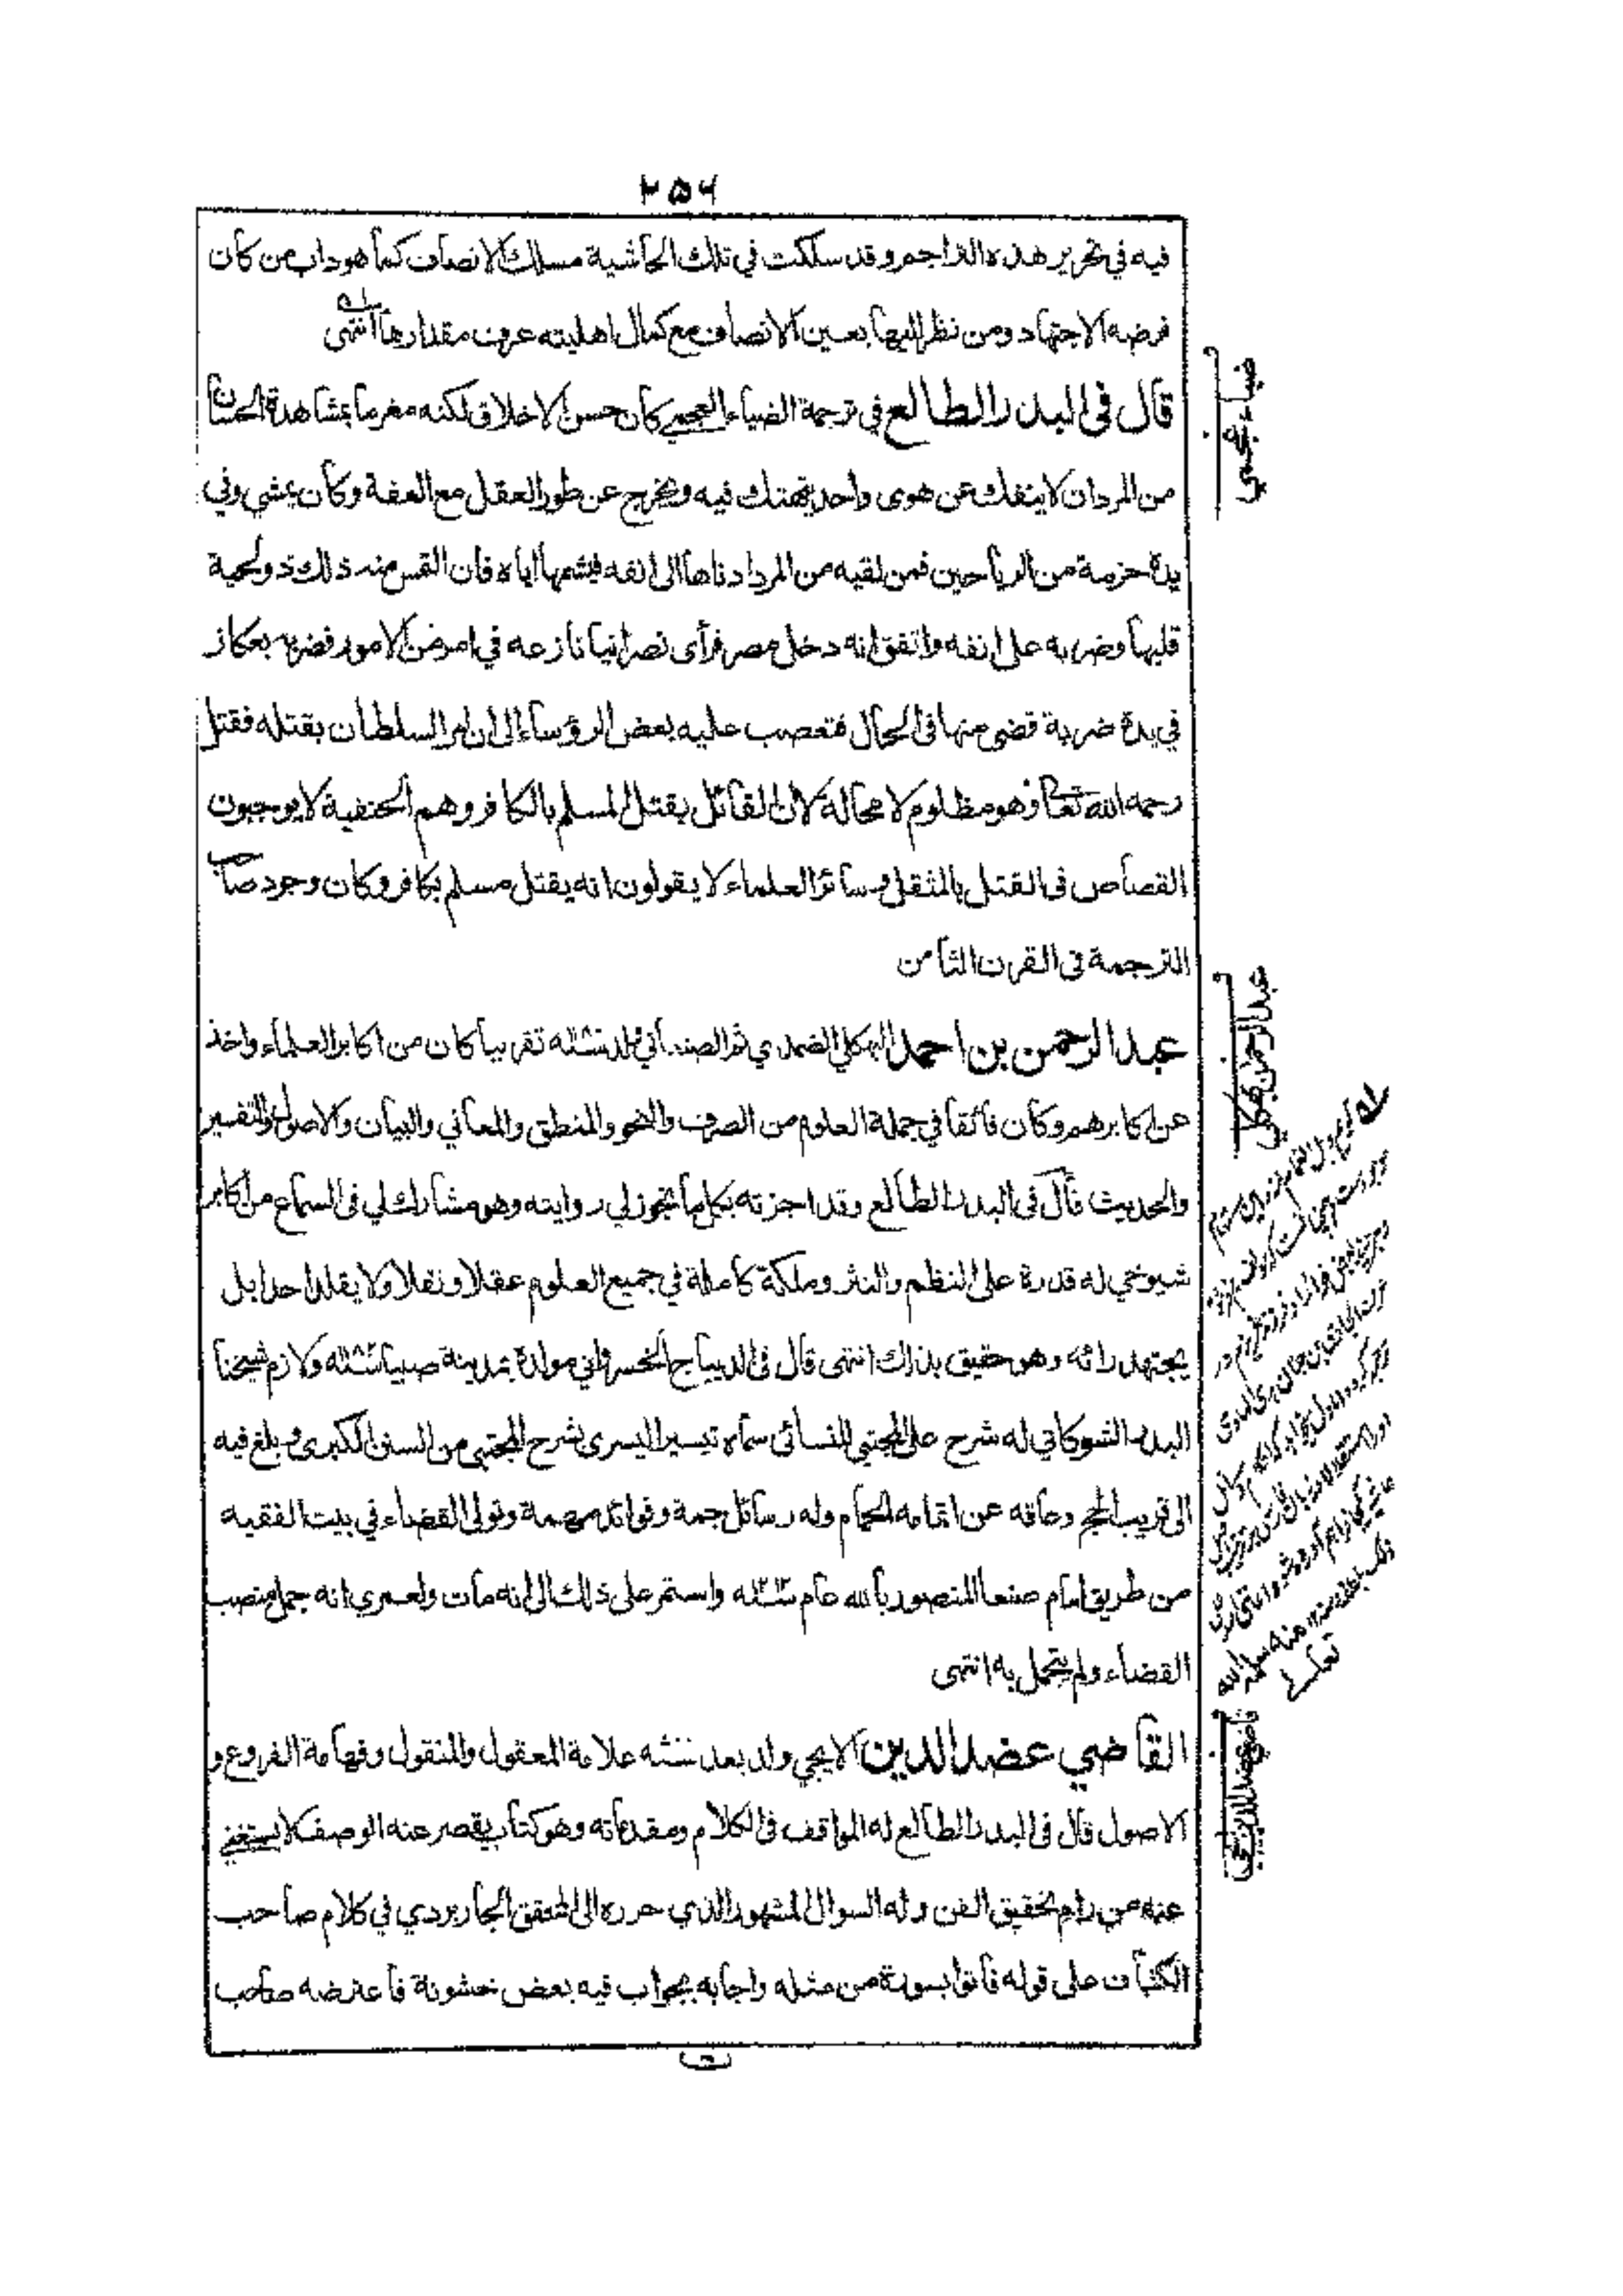 ۲۵۶
فيه في تحرير هذه التراجم وقد سلكت في تلك الحاشية مسلك الانصاف كما هو داب من كان
فرضه الاجتهاد ومن نظر اليها بعين الانصاف مع كمال اهليته عرف مقدارها انتهى
قال في البدر الطالع في ترجمة الضياء العجمي كان حسن الاخلاق لكنه مغرما بمشاهدة الحسان
من المردان لا ينفك عن هوى واحد يتهتك فيه ويخرج عن طور العقل مع العفة وكان يمشي وفي
يده حزمة من الرياحين فمن لقيه من المرد ادناها الى انفه فيشمها اياه فان القس منه ذلك ذو لحية
قلبها وضربه على انفه واتفق انه دخل مصر فرأى نصرانيا نازعه في امر من الامور فضربه بعكاز
في يده ضربة قضى منها في الحال فتعصب عليه بعض الرؤساء الى ان امر السلطان بقتله فقتل
رحمه الله تعالى وهو مظلوم لا محالة لان القائل بقتل المسلم بالكافر وهم الحنفية لا يوجبون
القصاص في القتل بالمثقل وسائر العلماء لا يقولون انه يقتل مسلم بكافر وكان وجود صاحب
الترجمة في القرن الثامن
عبد الرحمن بن احمد البهكلي الضمدي ثم الصنعاني ولد تقريبا كان من اكابر العلماء واخذ
عن اكابرهم وكان فائقا في جملة العلوم من الصرف والنحو والمنطق والمعاني والبيان والاصول والتفسير
والحديث قال في البدر الطالع وقد اجزته بكل ما تجوز لي روايته وهو مشارك لي في السماع من اكابر
شيوخي له قدرة على النظم والنثر وملكة كاملة في جميع العلوم عقلا ونقلا ولا يقلد احدا بل
يجتهد رائه وهو حقيق بذلك انتهى قال في الديباج الخسرواني مولده بمدينة صبيا ولازم شيخنا
البدر الشوكاني له شرح على المجتبى للنسائي سماه تيسير اليسرى بشرح المجتبى من السنن الكبرى وبلغ فيه
الى قريب الحج وعاقه عن اتمامه الحمام وله رسائل جمة وفوائد مهمة وتولى القضاء في بيت الفقيه
من طريق امام صنعا المنصور بالله عام واستمر على ذلك الى انه مات ولعمري انه جمل منصب
القضاء ولم يتجمل به انتهى
القاضي عضد الدين الايجي ولد بعد علامة المعقول والمنقول وفهامة الفروع و
الاصول قال في البدر الطالع له المواقف في الكلام ومقدماته وهو كتاب يقصر عنه الوصف لا يستغني
عنه من رام تحقيق الفن وله السوال المشهور الذي حرره الى المحقق الجاربردي في كلام صاحب
الكشاف على قوله فأتوا بسورة من مثله واجابه بجواب فيه بعض خشونة فاعترضه صاحب
ضياء عجمي
عبد الرحمن بهكلي
منه سلمه الله
تعالى
قاضي عضد الدين ايجي